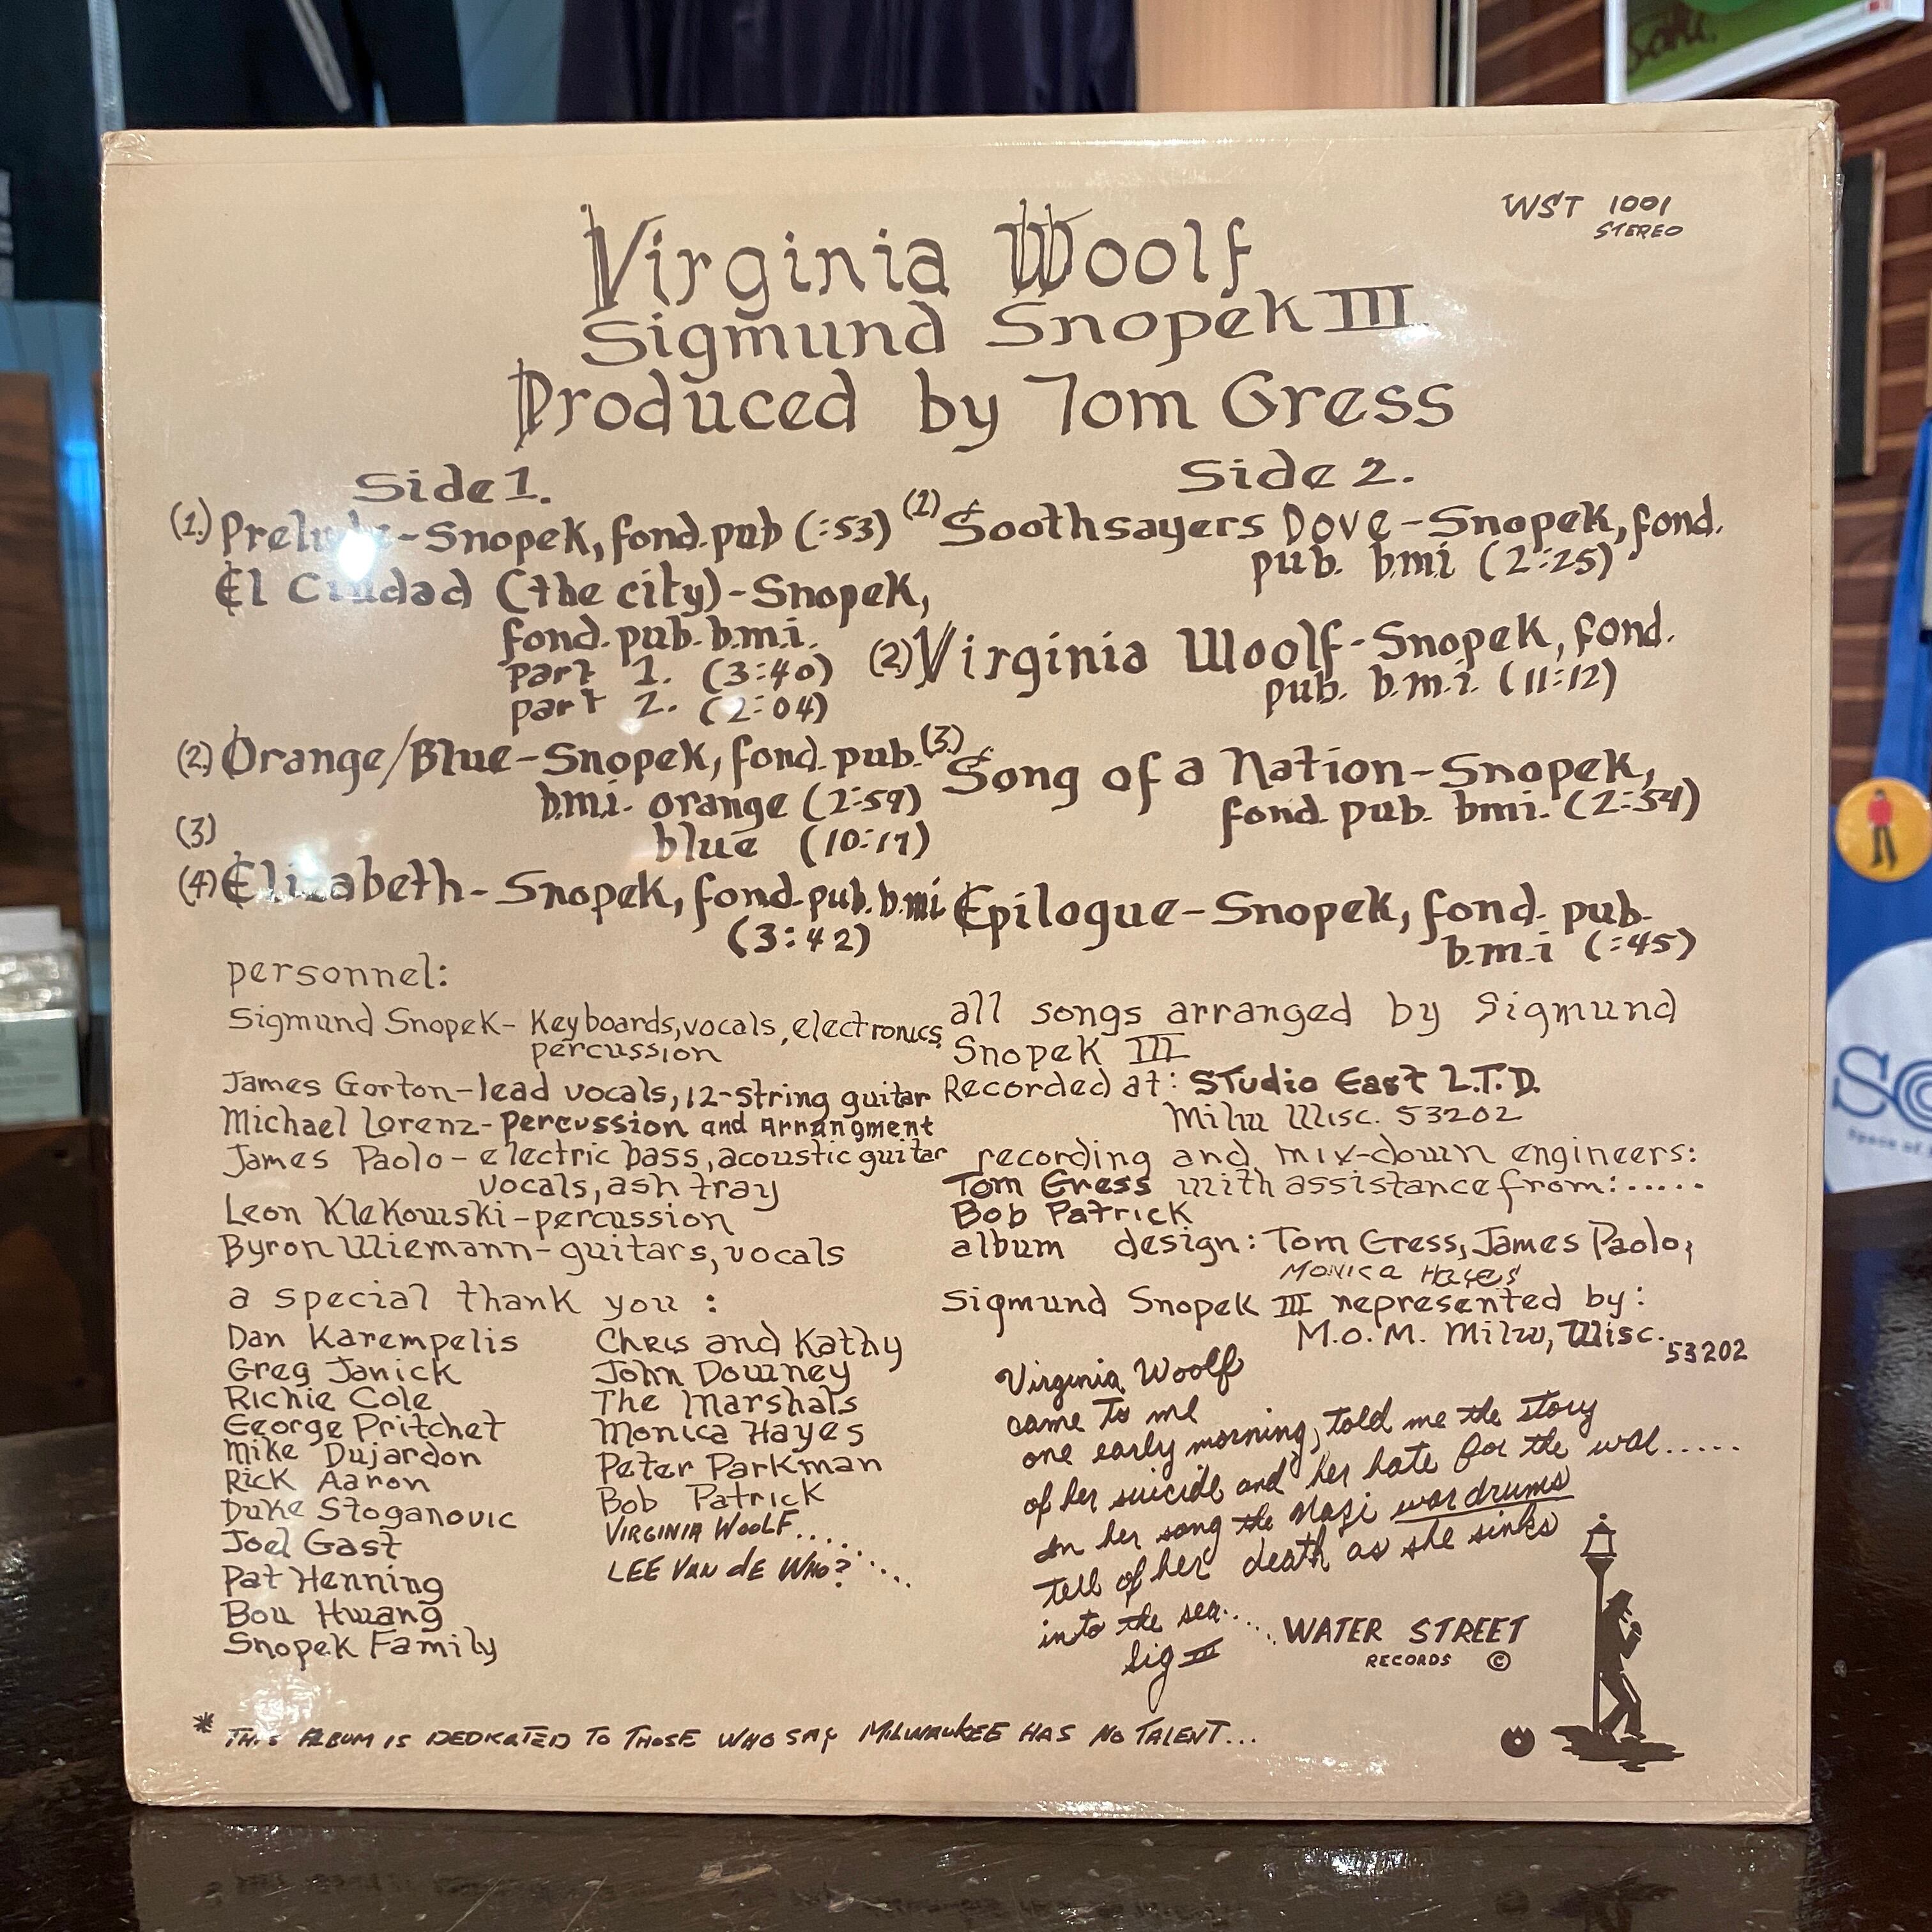 WST 1001
STEREO
Virginia Woolf
Sigmund Snopek III
Produced by Tom Gress
Side 1.
(1.) Prelude-Snopek, fond. pub (:53)
El Ciudad (the city)-Snopek,
fond. pub. b.m.i.
part 1. (3:40)
part 2. (2:04)
(2.) Orange/Blue-Snopek, fond. pub.
b.m.i. orange (2:59)
(3)
blue (10:17)
(4) Elizabeth- Snopek, fond. pub. b.mi
(3:42)
Side 2.
(1) Soothsayers Dove-Snopek, fond.
pub. b.mi (2:25)
(2.) Virginia Woolf-Snopek, fond.
pub. b.m.i. (11:12)
(3.) Song of a Nation-Snopek,
fond. pub. bmi. (2:54)
Epilogue-Snopek, fond. pub.
b.m.i (:45)
personnel:
Sigmund Snopek- Keyboards, vocals, electronics,
percussion
James Gorton-lead vocals, 12-string guitar
Michael Lorenz- Percussion and Arrangment
James Paolo- electric bass, acoustic guitar
vocals, ash tray
Leon Klekowski-percussion
Byron Wiemann-guitars, vocals
a special thank you :
Dan Karempelis
Greg Janick
Richie Cole
George Pritchet
Mike Dujardon
Rick Aaron
Duke Stoganovic
Joel Gast
Pat Henning
Bou Hwang
Snopek Family
Chris and Kathy
John Downey
The Marshals
Monica Hayes
Peter Parkman
Bob Patrick
VIRGINIA WOOLF....
LEE VAN dE WHO?....
all songs arranged by Sigmund
Snopek III
Recorded at: STudio East L.T.D.
Milw Wisc. 53202
recording and mix-down engineers:
Tom Gress with assistance from:.....
Bob Patrick
album design: Tom Gress, James Paolo,
Monica Hayes
Sigmund Snopek III represented by:
M.O.M. Milw, Wisc. 53202
Virginia Woolf
came to me
one early morning, told me the story
of her suicide and her hate for the war.....
In her song the Nazi war drums
tell of her death as she sinks
into the sea.....
Sig III
WATER STREET
RECORDS ©
* THIS ALBUM IS DEDICATED TO THOSE WHO SAY MILWAUKEE HAS NO TALENT...